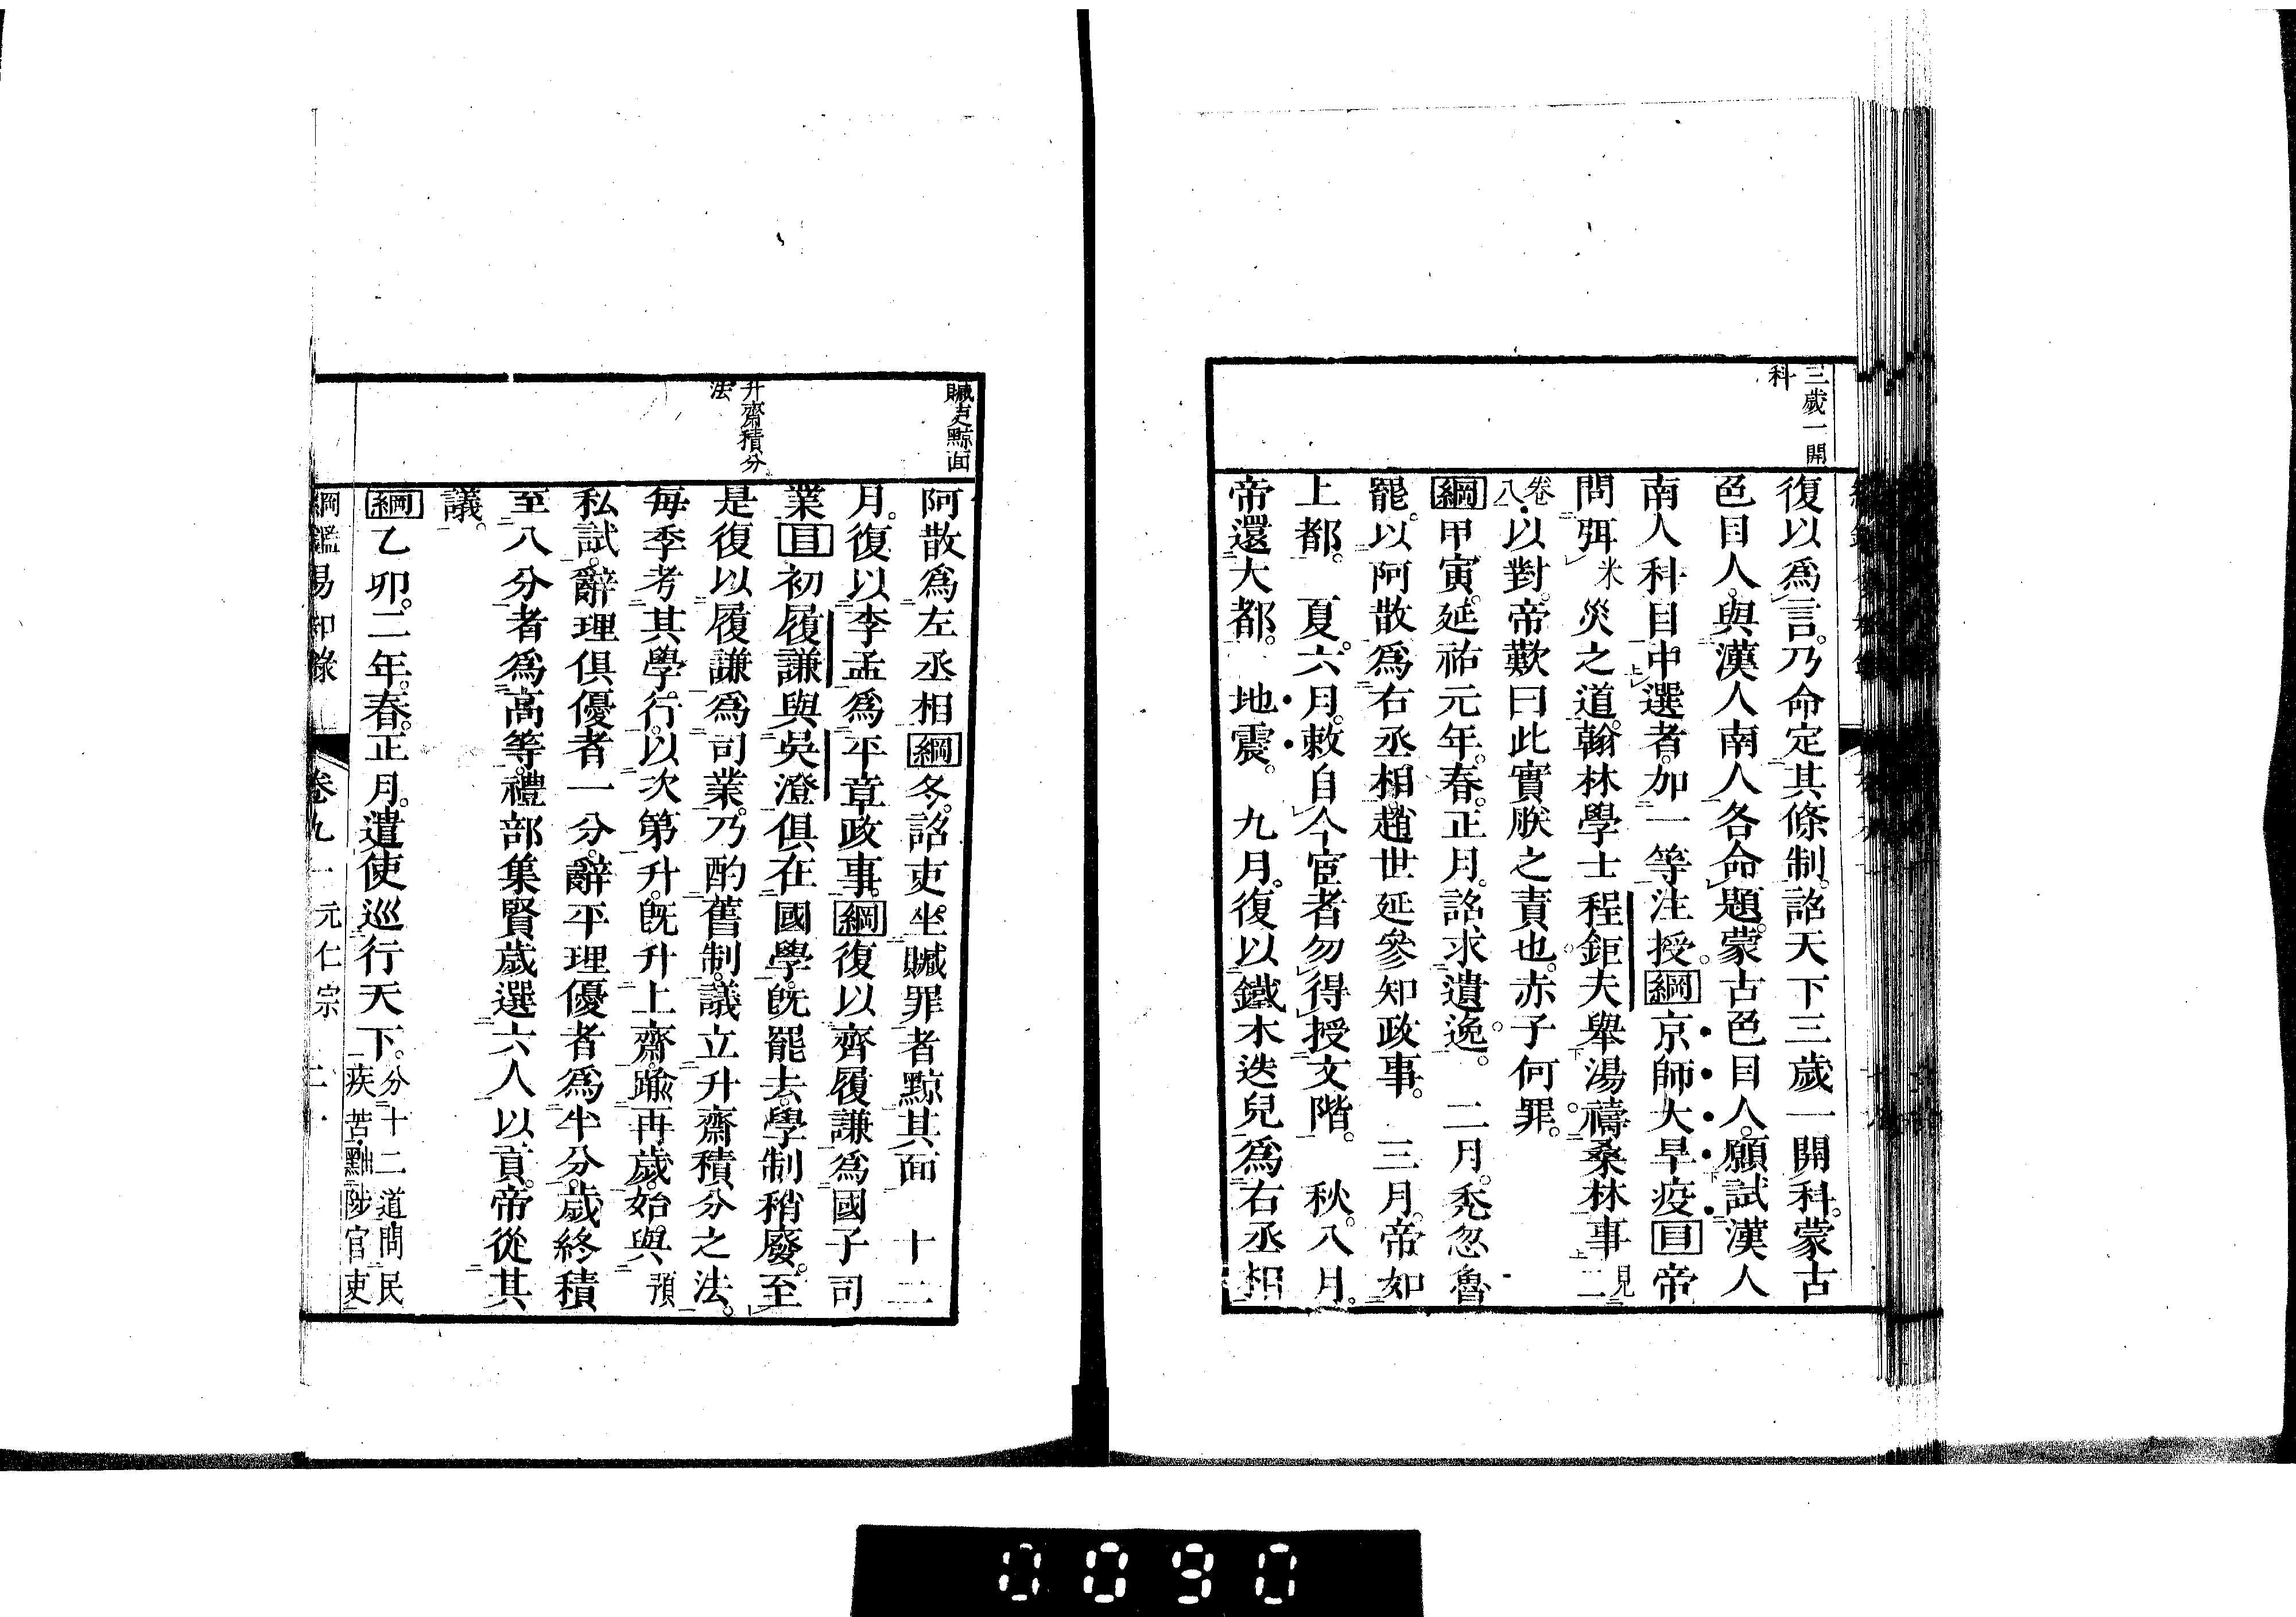 三歲一開
科
復以爲言。乃命定其條制。詔天下三歲一開科。蒙古
色目人。與漢人南人各命題。蒙古色目人。願試漢人
南人科目。中選者。加一等注授。綱京師大旱疫目帝
問弭米災之道。翰林學士程鉅夫舉湯禱桑林事見二
卷八以對。帝歎曰此實朕之責也。赤子何罪。
綱甲寅。延祐元年。春。正月。詔求遺逸。 二月。禿忽魯
罷。以阿散爲右丞相。趙世延參知政事。 三月。帝如
上都。 夏。六月。敕自今宦者勿得授文階。 秋。八月。
帝還大都。 地震。 九月。復以鐵木迭兒爲右丞相
贓吏黥面
升齋積分
法
阿散爲左丞相綱冬。詔吏坐贓罪者黥其面 十二
月。復以李孟爲平章政事。綱復以齊履謙爲國子司
業目初履謙與吳澄俱在國學。旣罷去。學制稍廢。至
是復以履謙爲司業。乃酌舊制。議立升齋積分之法。
每季考其學行。以次第升。旣升上齋。踰再歲。始與預
私試。辭理俱優者一分。辭平理優者爲半分。歲終積
至八分者爲高等。禮部集賢歲選六人以貢。帝從其
議。
綱乙卯。二年。春。正月。遣使巡行天下。分十二道問民
疾苦黜陟官吏
綱鑑易知錄 卷九一 元仁宗
0090